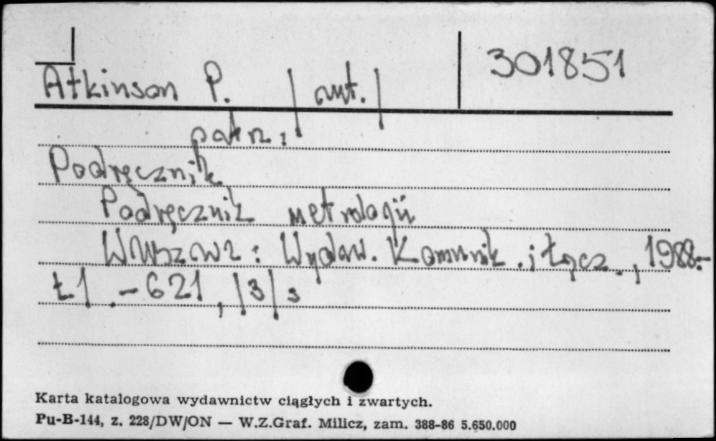 301851
Atkinson P. /aut./
patrz:
Podręcznik
Podręcznik metrologii
Warszawa: Wydaw. Komunik. i Łącz., 1988.-
t1.-621, /3/s
Karta katalogowa wydawnictw ciągłych i zwartych.
Pu-B-144, z. 228/DW/ON — W.Z.Graf. Milicz, zam. 388-86 5.650.000